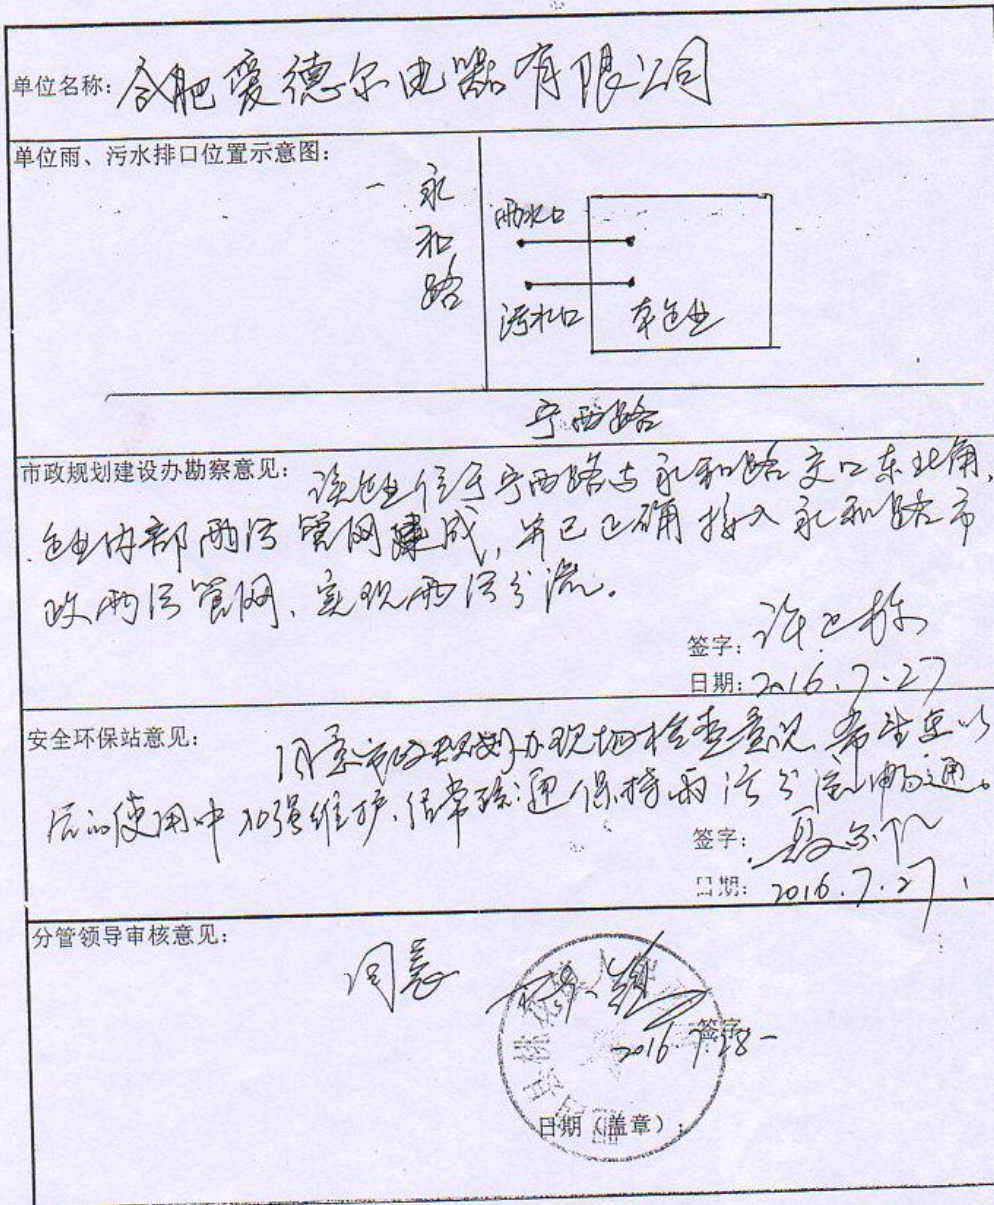 单位名称：合肥爱德尔电器有限公司
单位雨、污水排口位置示意图：
永和路
雨水口
污水口
本企业
宁西路
市政规划建设办勘察意见：该企业位于宁西路与永和路交口东北角，
企业内部雨污管网建成，并已正确接入永和路市
政雨污管网，实现雨污分流。
签字：许
日期：2016.7.27
安全环保站意见：同意市政规划办现场检查意见，
后的使用中加强维护，经常疏通保持雨污分流畅通。
签字：
日期：2016.7.27
分管领导审核意见：
同意
签字
2016.7.28
日期（盖章）：